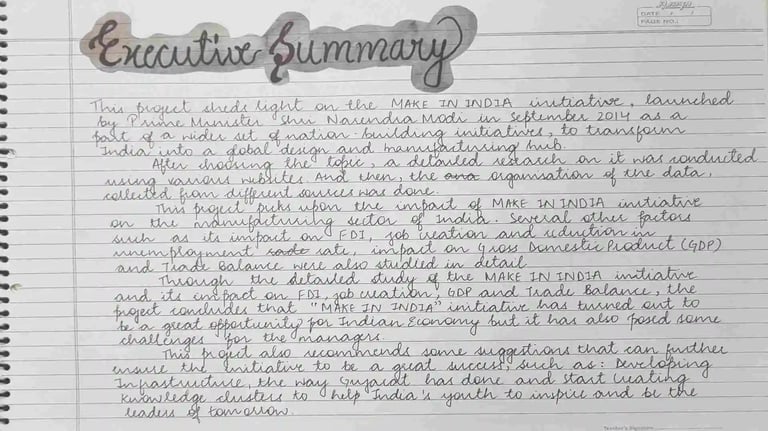 DATE: / /
PAGE NO.:
Executive Summary
This project sheds light on the MAKE IN INDIA initiative, launched
by Prime Minister Shri Narendra Modi in September 2014 as a
part of a wider set of nation-building initiatives, to transform
India into a global design and manufacturing hub.
After choosing the topic, a detailed research on it was conducted
using various websites. And then, the and organisation of the data,
collected from different sources was done.
This project picks upon the impact of MAKE IN INDIA initiative
on the manufacturing sector of India. Several other factors
such as its impact on FDI, job creation and reduction in
unemployment rate, impact on Gross Domestic Product (GDP)
and Trade Balance were also studied in detail
Through the detailed study of the MAKE IN INDIA initiative
and its impact on FDI, job creation, GDP and Trade Balance, the
project concludes that "MAKE IN INDIA" initiative has turned out to
be a great opportunity for Indian Economy but it has also posed some
challenges for the managers.
This project also recommends some suggestions that can further
ensure the initiative to be a great success, such as: Developing
Infrastructure, the way Gujarat has done and start creating
knowledge clusters to help India's youth to inspire and be the
leaders of tomorrow.
Teacher's Signature